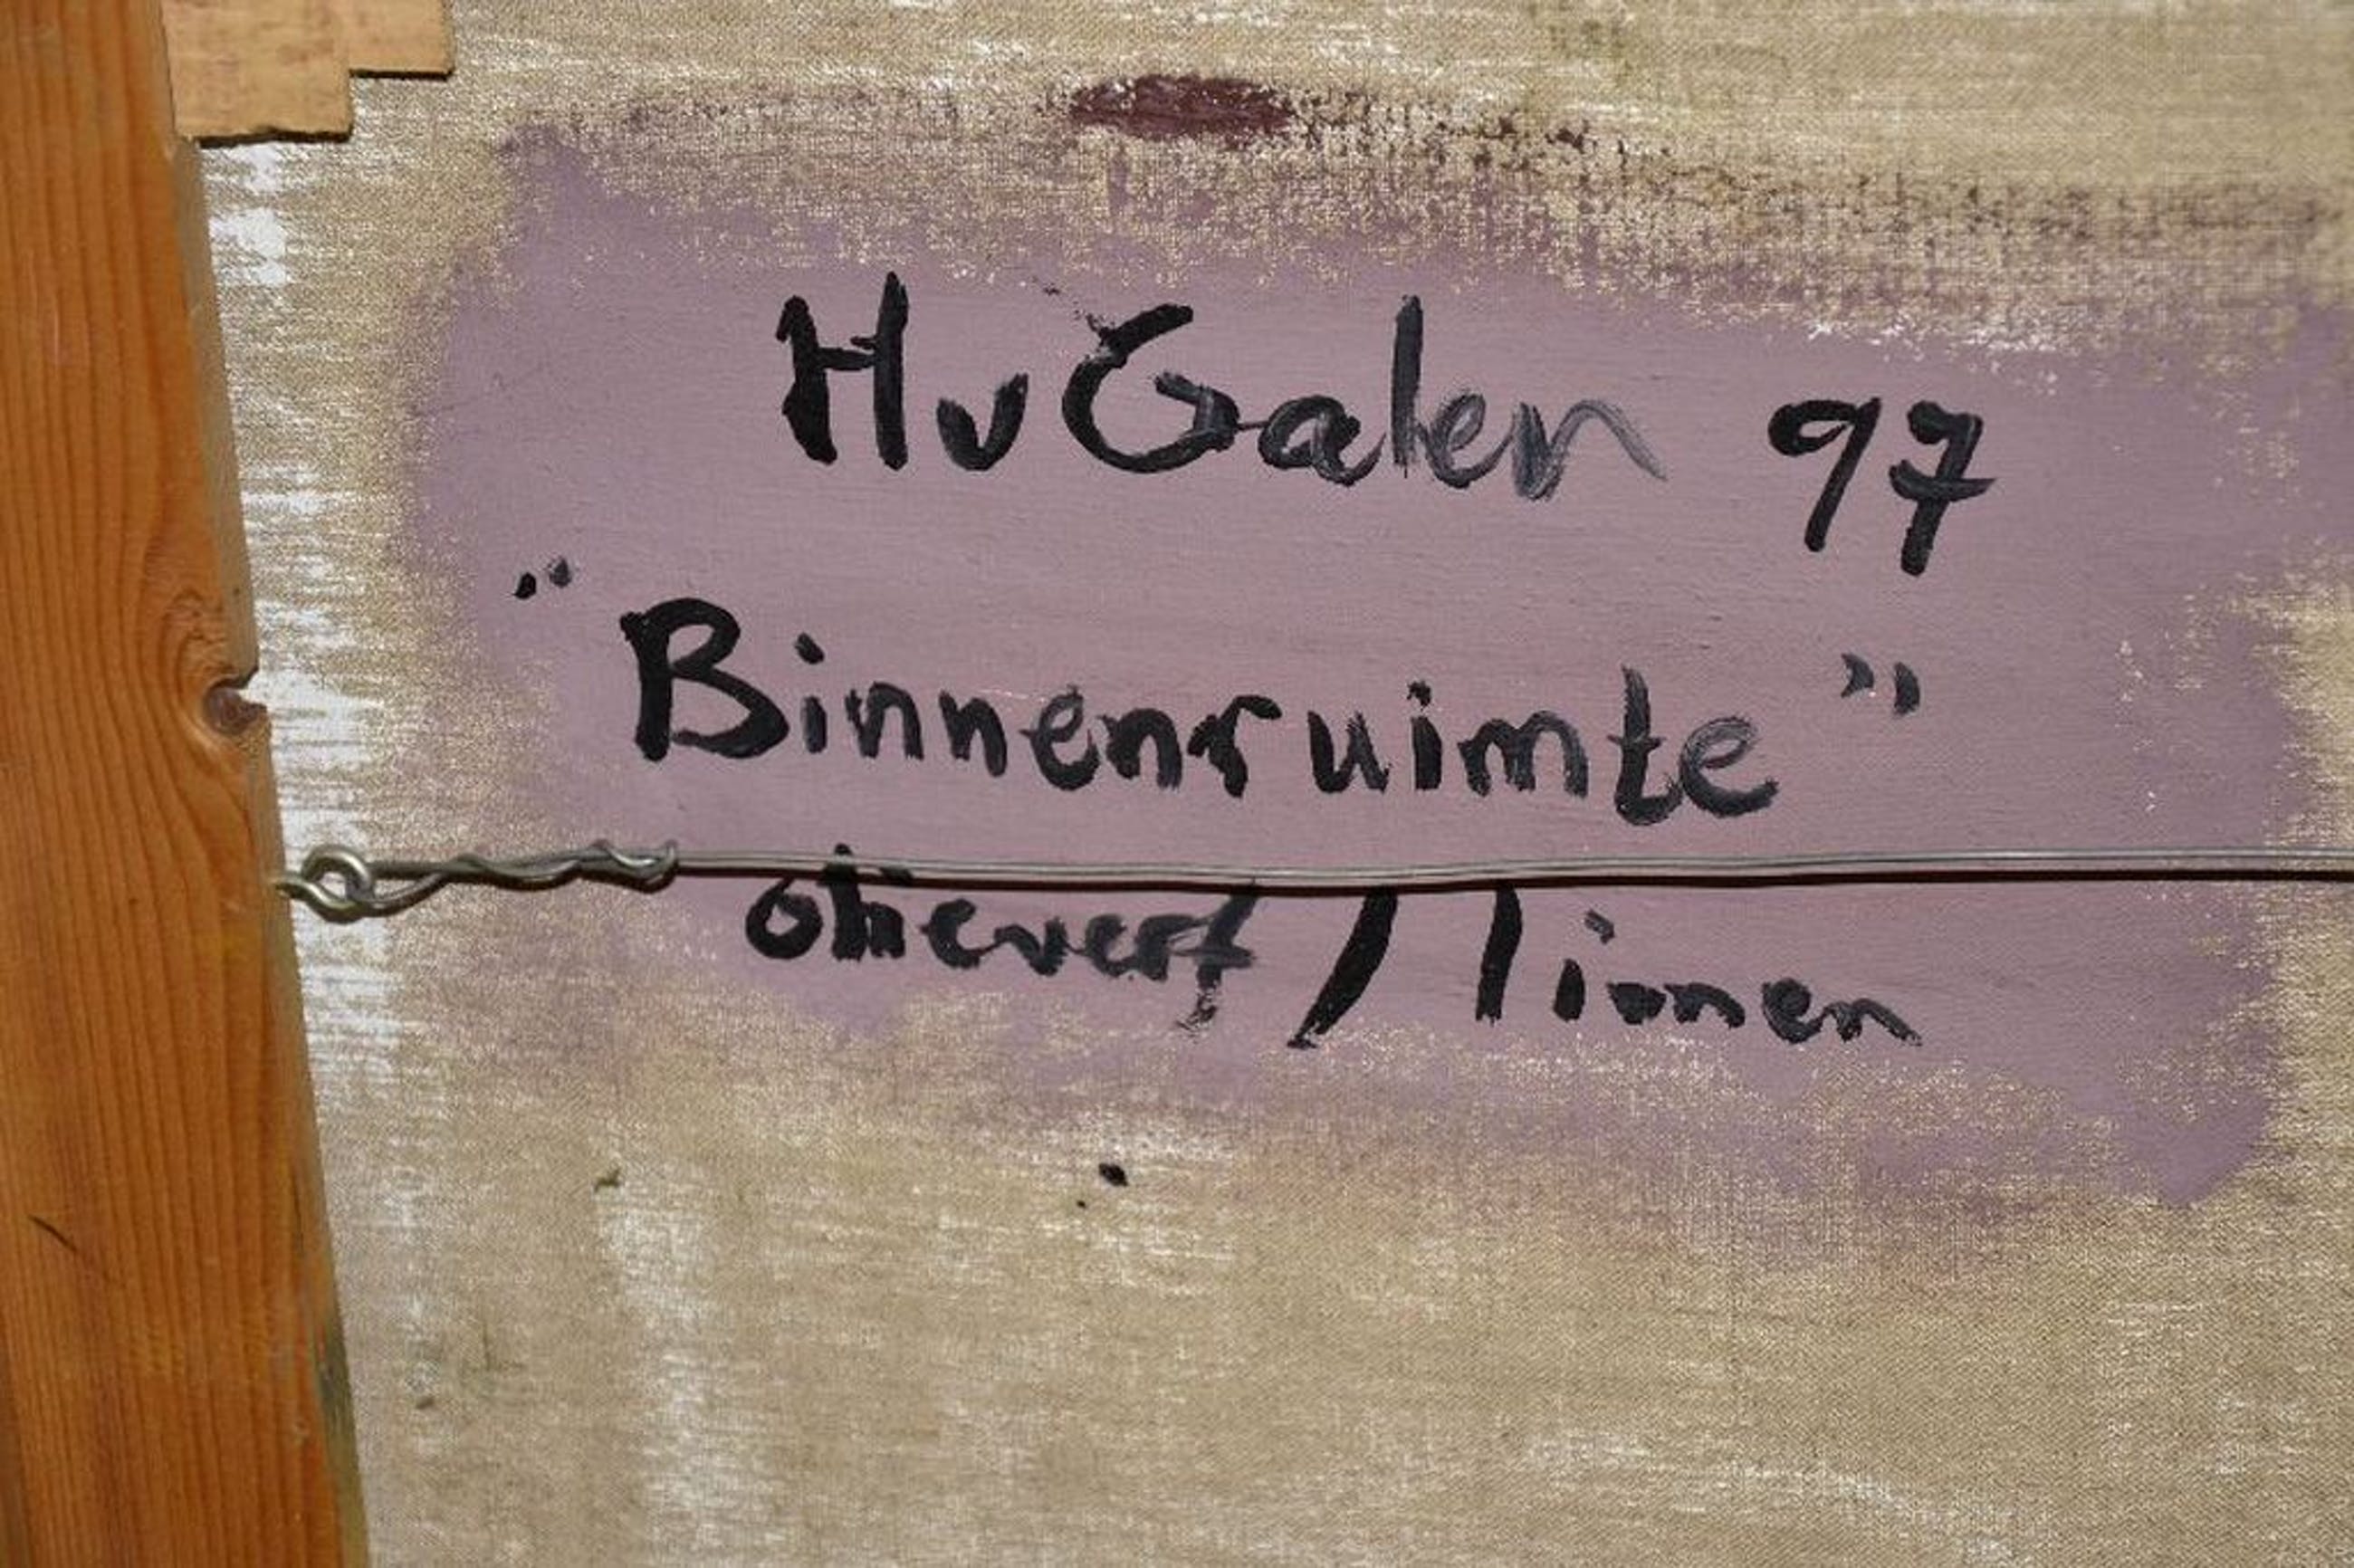 Hv Galen 97
"Binnenruimte"
olieverf / linnen